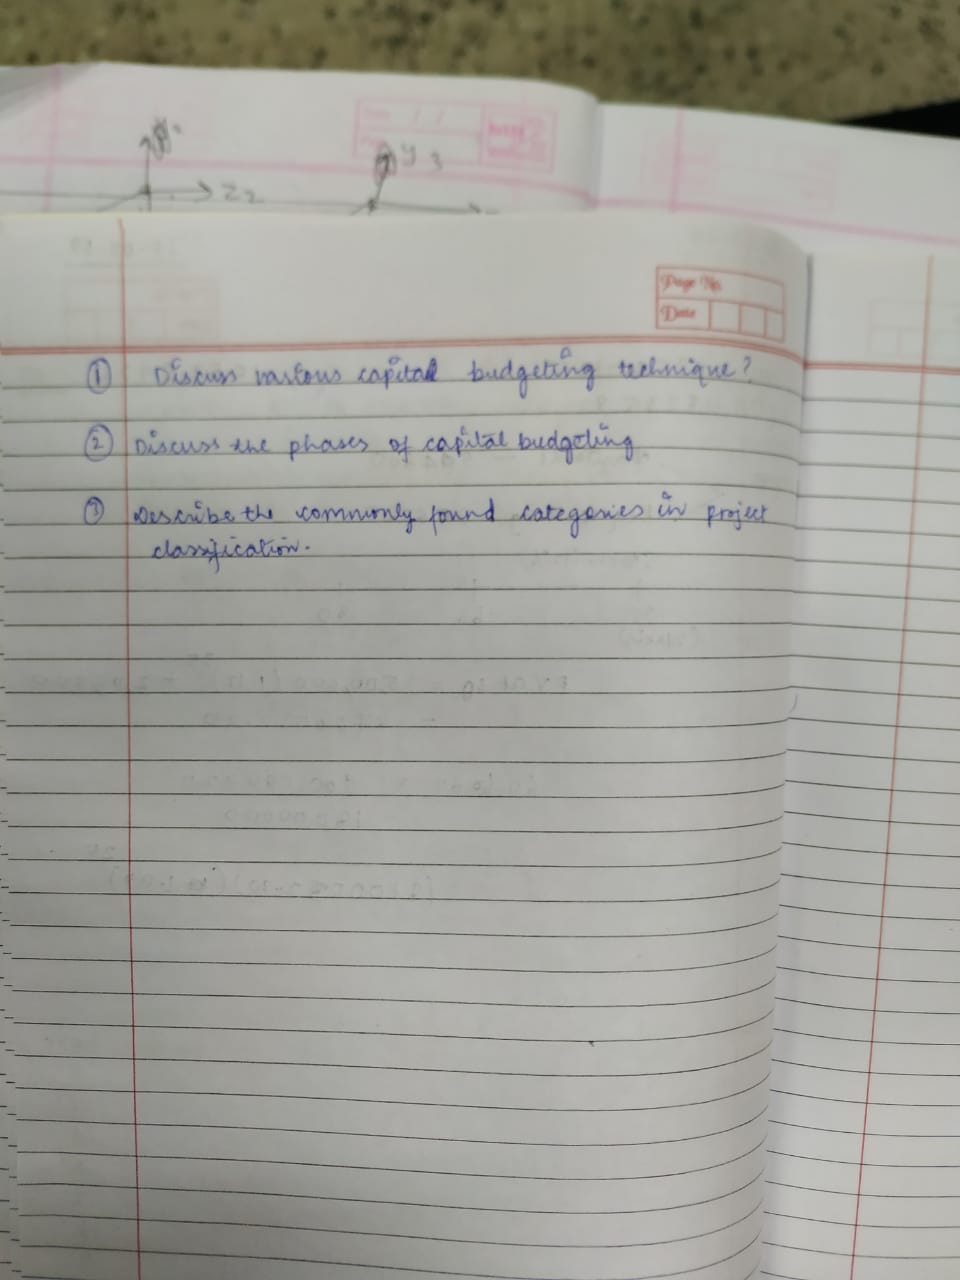 y 3
z2
Page No.
Date
① Discuss various capital budgeting technique?
② Discuss the phases of capital budgeting
③ Describe the commonly found categories in project
classification.